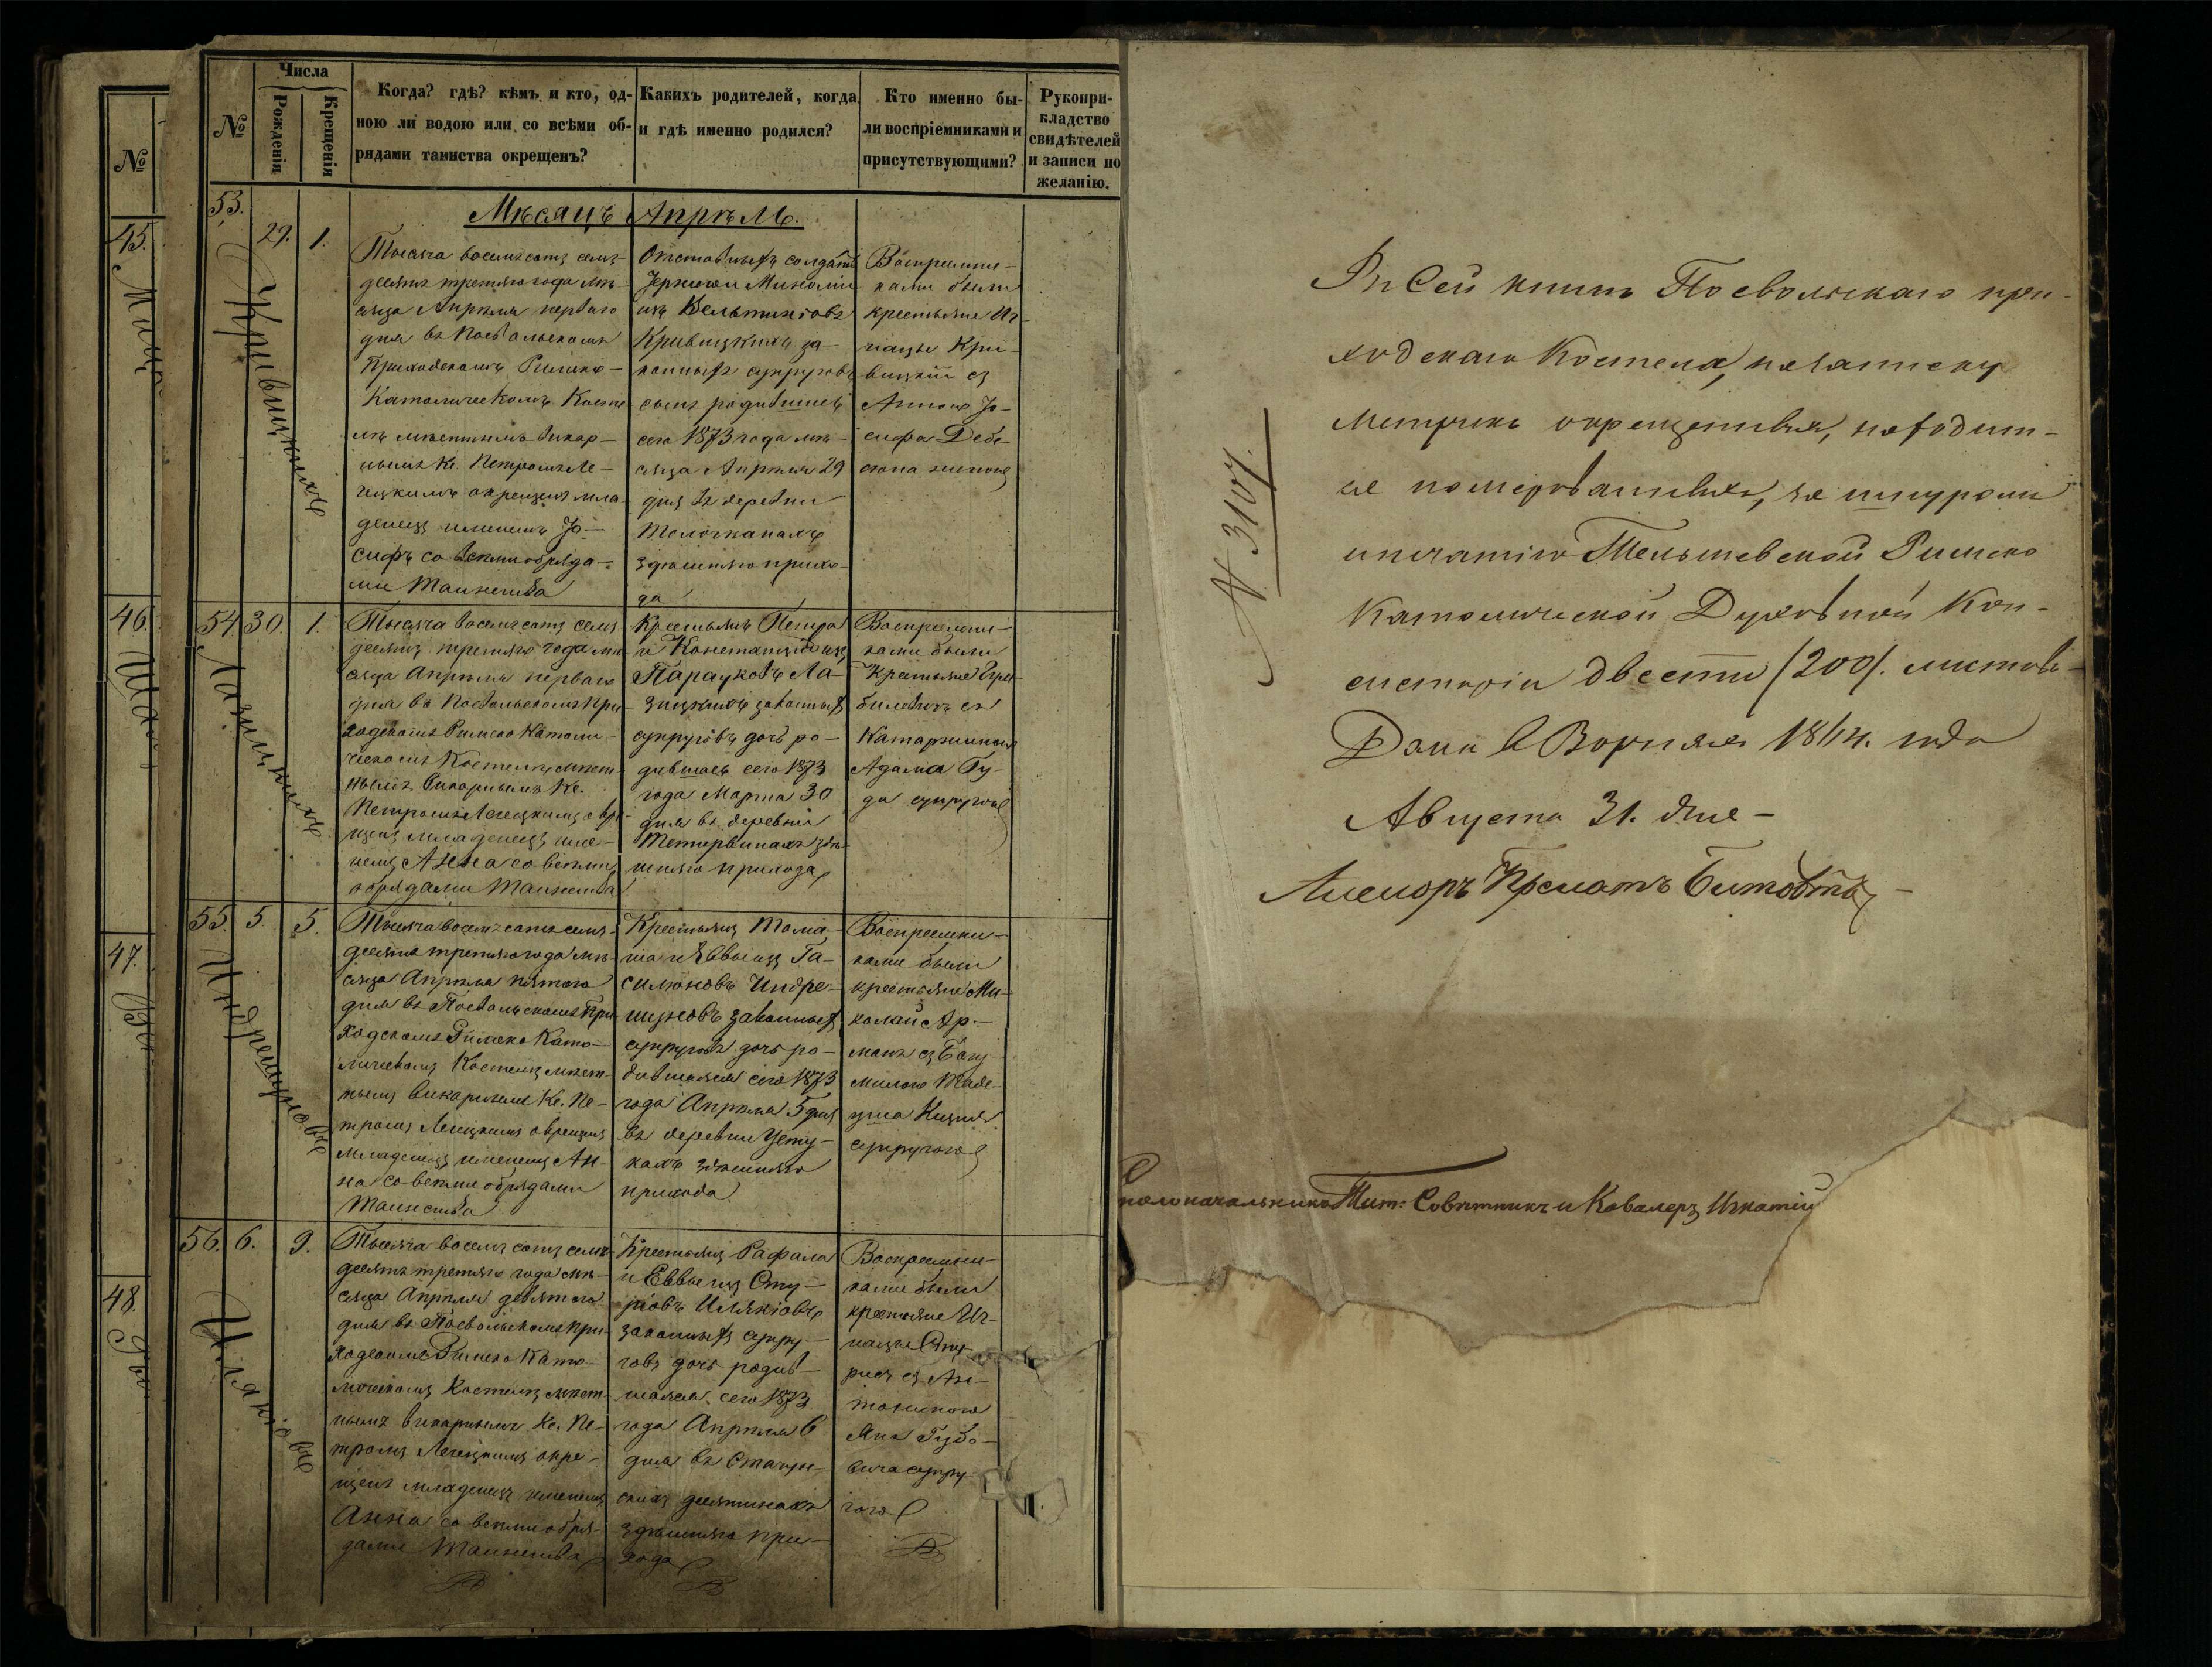 №
45.
46.
47.
48.
№
Числа
Рожденія
Крещенія
Когда? гдѣ? кѣмъ и кто, од-
ною ли водою или со всѣми об-
рядами таинства окрещенъ?
Какихъ родителей, когда
и гдѣ именно родился?
Кто именно бы-
ли воспріемниками и
присутствующими?
Рукопри-
кладство
свидѣтелей
и записи по
желанію.
Мѣсяцъ Апрѣль.
53.
29.
1.
Кривицкихъ
Тысяча восемьсотъ семь-
десятъ третьяго года мѣ-
сяца Апрѣля перваго
дня въ Посвольскомъ
Приходскомъ Римско-
Католическомъ Косте
лѣ мѣстнымъ Викар-
нымъ Кс. Петромъ Ле-
гецкимъ окрещенъ мла
денецъ именемъ Іо-
сифъ со всѣми обряда-
ми Таинства
Отставныхъ солдатъ
изъ
Кривицкихъ за-
конныхъ супруговъ
сынъ родившійся
сего 1873 года мѣ-
сяца Апрѣля 29
дня въ деревни
Толочканахъ
здѣшняго прихо-
да
Воспріемни-
ками были
крестьяне Иг-
нацы Кри-
вицкій съ
Анною Іо-
сифа
женою
54
30.
1.
Лазицкихъ
Тысяча восемьсотъ семь-
десятъ третьяго года мѣ-
сяца Апрѣля перваго
дня въ Посвольскомъ При
ходскомъ Римско Католи-
ческомъ Костелѣ мѣст-
нымъ Викарнымъ Кс.
Петромъ Легецкимъ окре-
щенъ младенецъ име-
немъ Анна со всѣми
обрядами Таинства
Крестьянъ Петра
и Констанціи изъ
Парауковъ Ла-
зицкихъ законныхъ
супруговъ дочь ро-
дившаяся сего 1873
года Марта 30
дня въ деревни
Тетервинахъ здѣ-
шняго прихода
Воспріемни-
ками были
Крестьяне
съ
Катаржиною
Адама Гу-
да супругою
55.
5.
5.
Индрешуновъ
Тысяча восемьсотъ семь-
десятъ третьяго года мѣ-
сяца Апрѣля пятаго
дня въ Посвольскомъ При
ходскомъ Римско Като-
лическомъ Костелѣ мѣст-
нымъ Викарнымъ Кс. Пе-
тромъ Легецкимъ окрещенъ
младенецъ именемъ Ан-
на со всѣми обрядами
Таинства
Крестьянъ Тома-
ша и Еввы изъ Га-
силюновъ Индре-
шуновъ законныхъ
супруговъ дочь ро-
дившаяся сего 1873
года Апрѣля 5 дня
въ деревни Усту-
кахъ здѣшняго
прихода
Воспріемни-
ками были
крестьяне Ми-
колай Ар-
манъ съ Богу-
милою Таде-
уша
супругою
56.
6.
9.
Илякіовъ
Тысяча восемьсотъ семь-
десятъ третьяго года мѣ-
сяца Апрѣля девятаго
дня въ Посвольскомъ При
ходскомъ Римско Като-
лическомъ Костелѣ мѣст-
нымъ Викарнымъ Кс. Пе-
тромъ Легецкимъ окре-
щенъ младенецъ именемъ
Анна со всѣми обря-
дами Таинства
Крестьянъ Рафала
и Еввы изъ Сту-
ріовъ Илякіовъ
законныхъ супру-
говъ дочь родив-
шаяся сего 1873
года Апрѣля 6
дня въ
десятинахъ
здѣшняго при-
хода
Воспріемни-
ками были
крестьяне Иг-
нацы Сту-
рись съ Ан-
тониною
Яна
супру-
гою
№ 3107.
Въ Сей книгѣ Посвольскаго при-
ходскаго Костела, на записку
Метрикъ окрещенныхъ, находит-
ся номерованныхъ, за шнуромъ
и печатію Тельшевской Римско
Католической Духовной Кон-
систоріи двести (200). листовъ
Дана в Ворняхъ 1864. года
Августа 31. дня -
Ассесоръ Прелатъ Битовтъ -
Столоначальникъ Тит: Совѣтникъ и Кавалеръ Игнатій